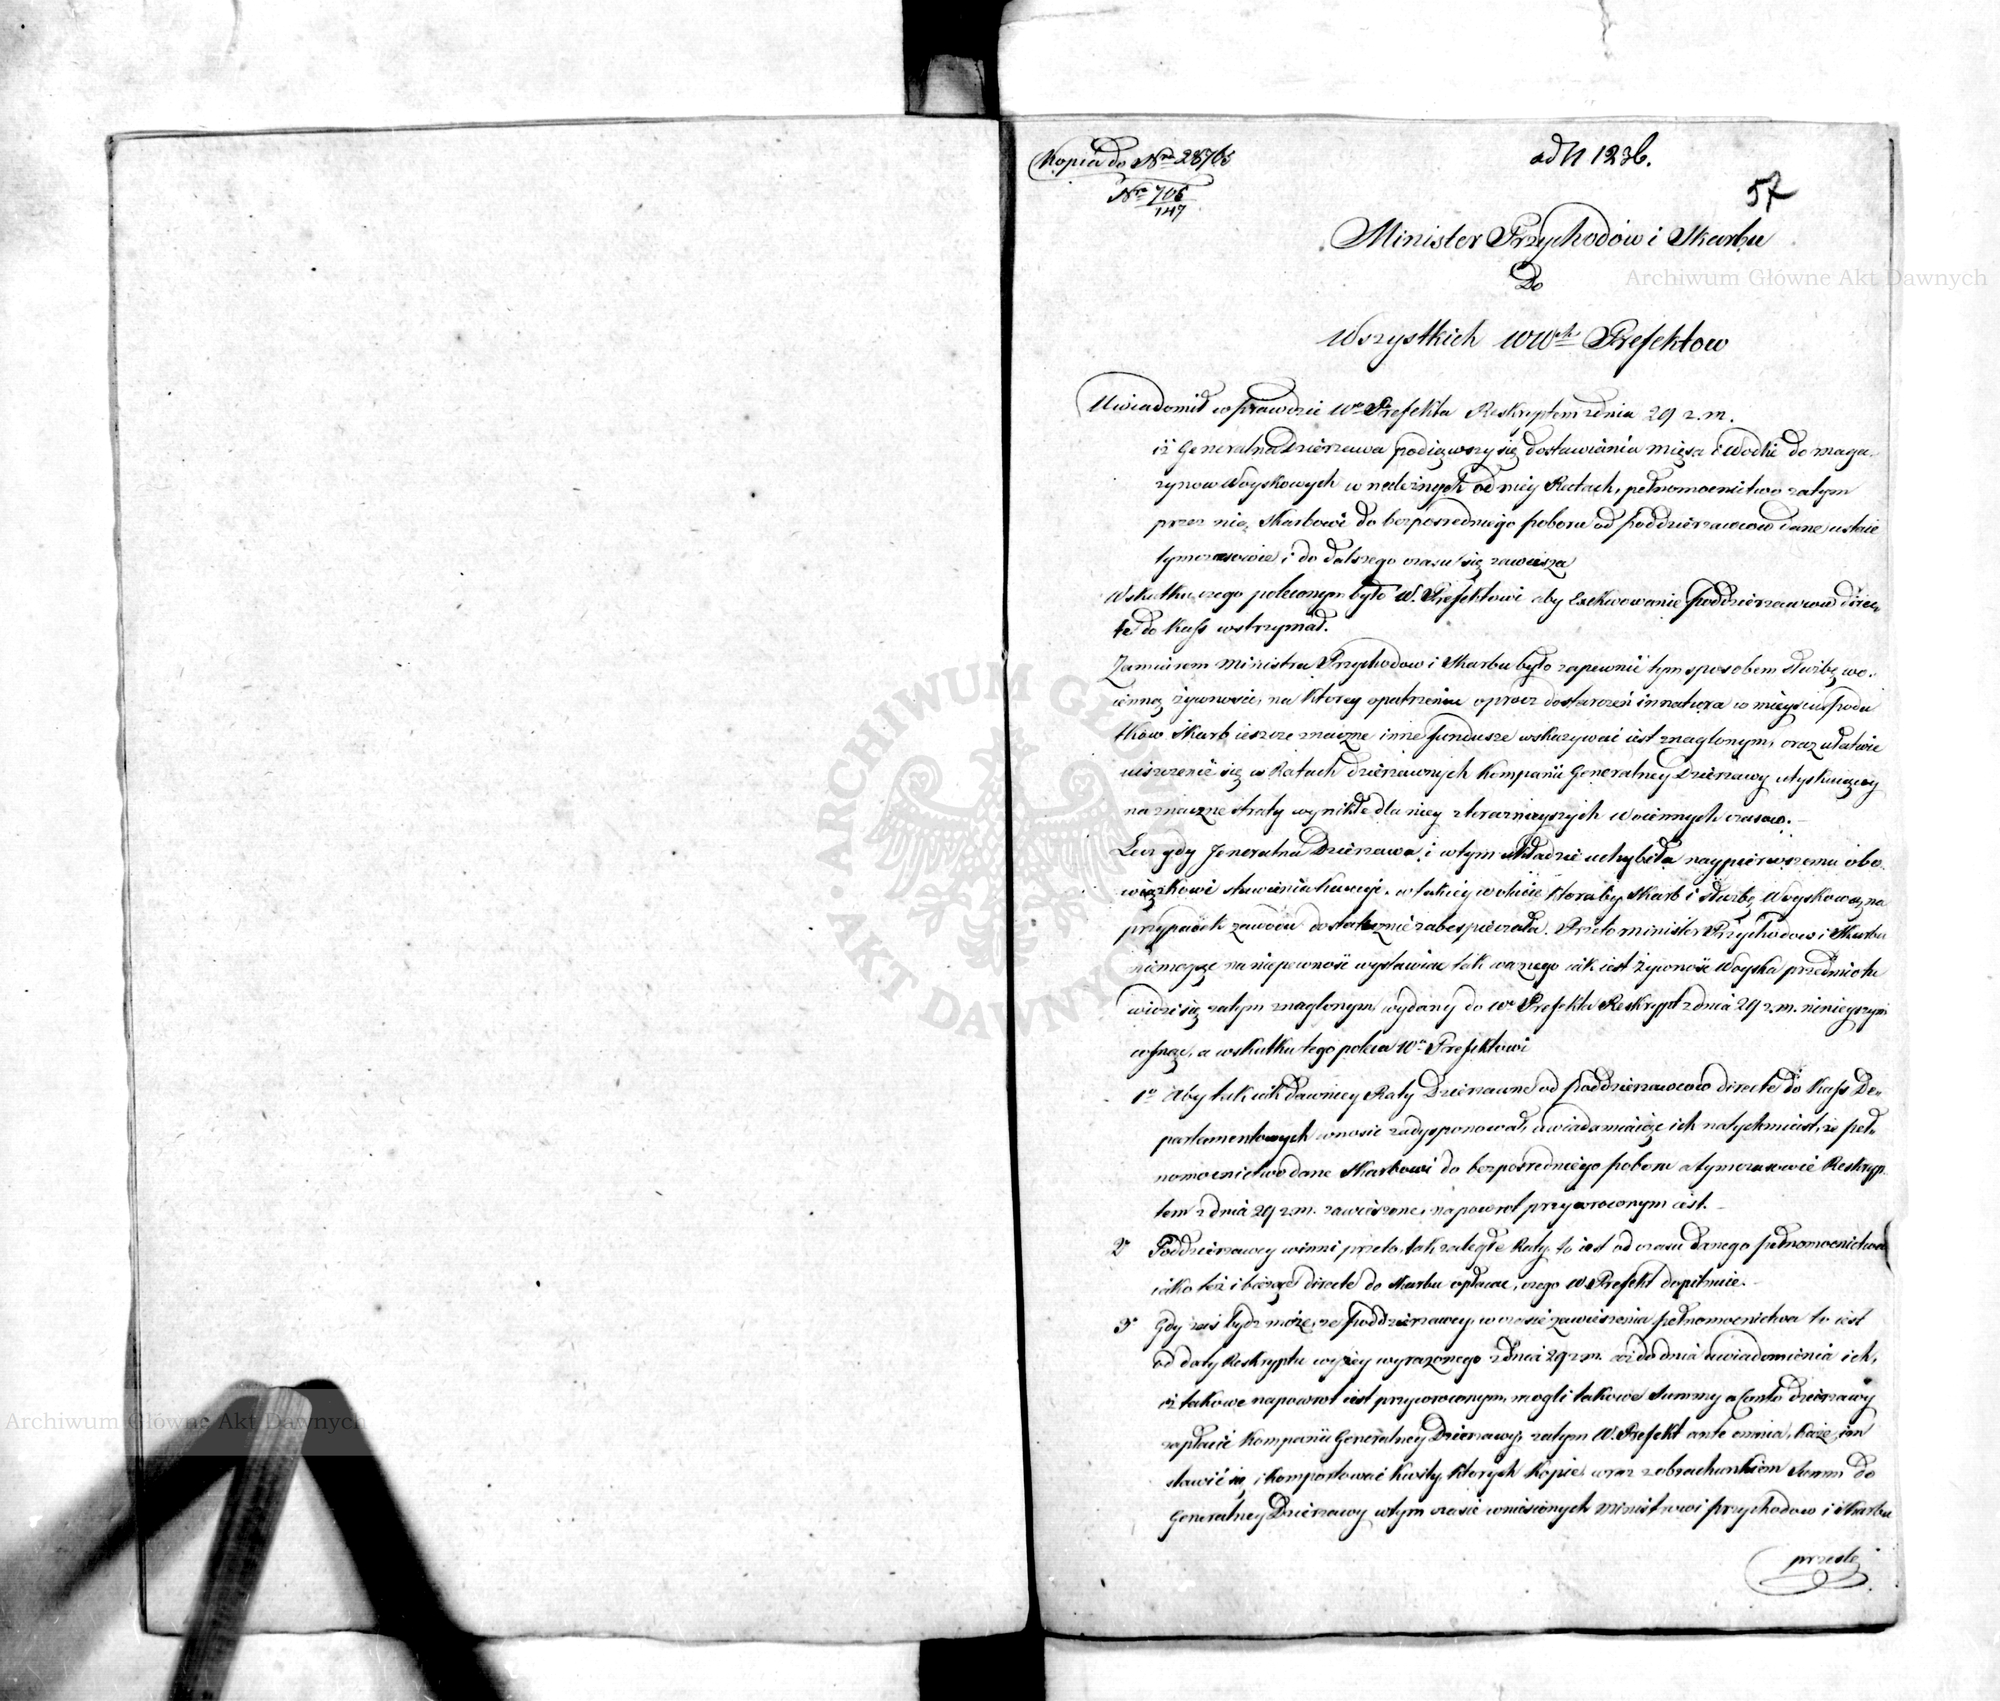 Kopia do Nro 28765
Nro 706
147
ad N 1236.
57
Minister Przychodow i Skarbu
Do
Wszystkich WWch Prefektow
Uwiadomił wprawdzie Wo Prefekta Reskryptem zdnia 29 z. m.
iż Generalna Dzierzawa podiąwszy się dostawiania mięsa i Wodki do maga-
zynow Woyskowych w należnych od niey Ratach, pełnomocnictwo zatym
przez nią Skarbowi do bezposredniego poboru od poddzierzawcow dane ustaie
tymczasowie i do dalszego czasu się zawiesza
Wskutku czego poleconym było W. Prefektowi aby Exekwowanie poddzierzawcow direc-
te do Kass wstrzymał.
Zamiarem Ministra Przychodow i Skarbu było zapewnić tym sposobem służbę wo-
ienną żywności, na ktorey opatrzenie oprocz dostarczeń in natura w mieyscu poda
tkow Skarb ieszcze znaczne inne fundusze wskazywać iest znaglonym, oraz ułatwić
uiszczenie się w Ratach dzierzawnych Kompanii Generalney Dzierzawy utyskuiącey
na znaczne straty wynikłe dla niey z teraznieyszych Woiennych czasow.
Lecz gdy Jeneralna Dzierzawa i w tym układzie uchybiła naypierwszemu obo-
wiązkowi stawienia kaucyi, w takiey wolucie ktoraby Skarb i służbę Woyskową na
przypadek zawodu dostatecznie zabespieczała. Przeto minister Przychodow i Skarbu
niemogąc na niepewność wystawiac tak waznego iak iest żywność Woyska przedmiotu
widzi się zatym znaglonym wydany do Wo Prefekta Reskrypt zdnia 29 z. m. ninieyszym
cofnąć, a wskutku tego poleca Wu Prefektowi
1o Aby tak iak dawniey Raty Dzierzawne od poddzierzawcow directe do Kass De-
partamentowych wnosic zadysponował, uwiadamiaiąc ich natychmiast, że peł-
nomocnictwo dane Skarbowi do bezposredniego poboru a tymczasowie Reskryp-
tem z dnia 29 z. m. zawieszone, napowrot przywroconym iest.
2o Poddzierzawcy winni przeto, tak zaległe Raty, to iest od czasu danego pełnomocnictwa
iako też i bieżące directe do Skarbu opłacac, czego W Prefekt dopilnuie.
3o Gdy zas bydz może, ze poddzierzawcy w czasie zawieszenia pełnomocnictwa to iest
od daty Reskryptu wyżey wyrazonego z dnia 29 z m. aż do dnia uwiadomienia ich,
iż takowe napowrot iest przywroconym, mogli takowe Summy a Conto dzierzawy
zapłacić Kompanii Generalney Dzierzawy, zatym W. Prefekt ante omnia, każe im
stawić się i komportować Kwity, ktorych Kopie wraz z obrachunkiem Summ do
Generalney Dzierzawy w tym czasie wniesionych Ministrowi przychodow i Skarbu
prześle